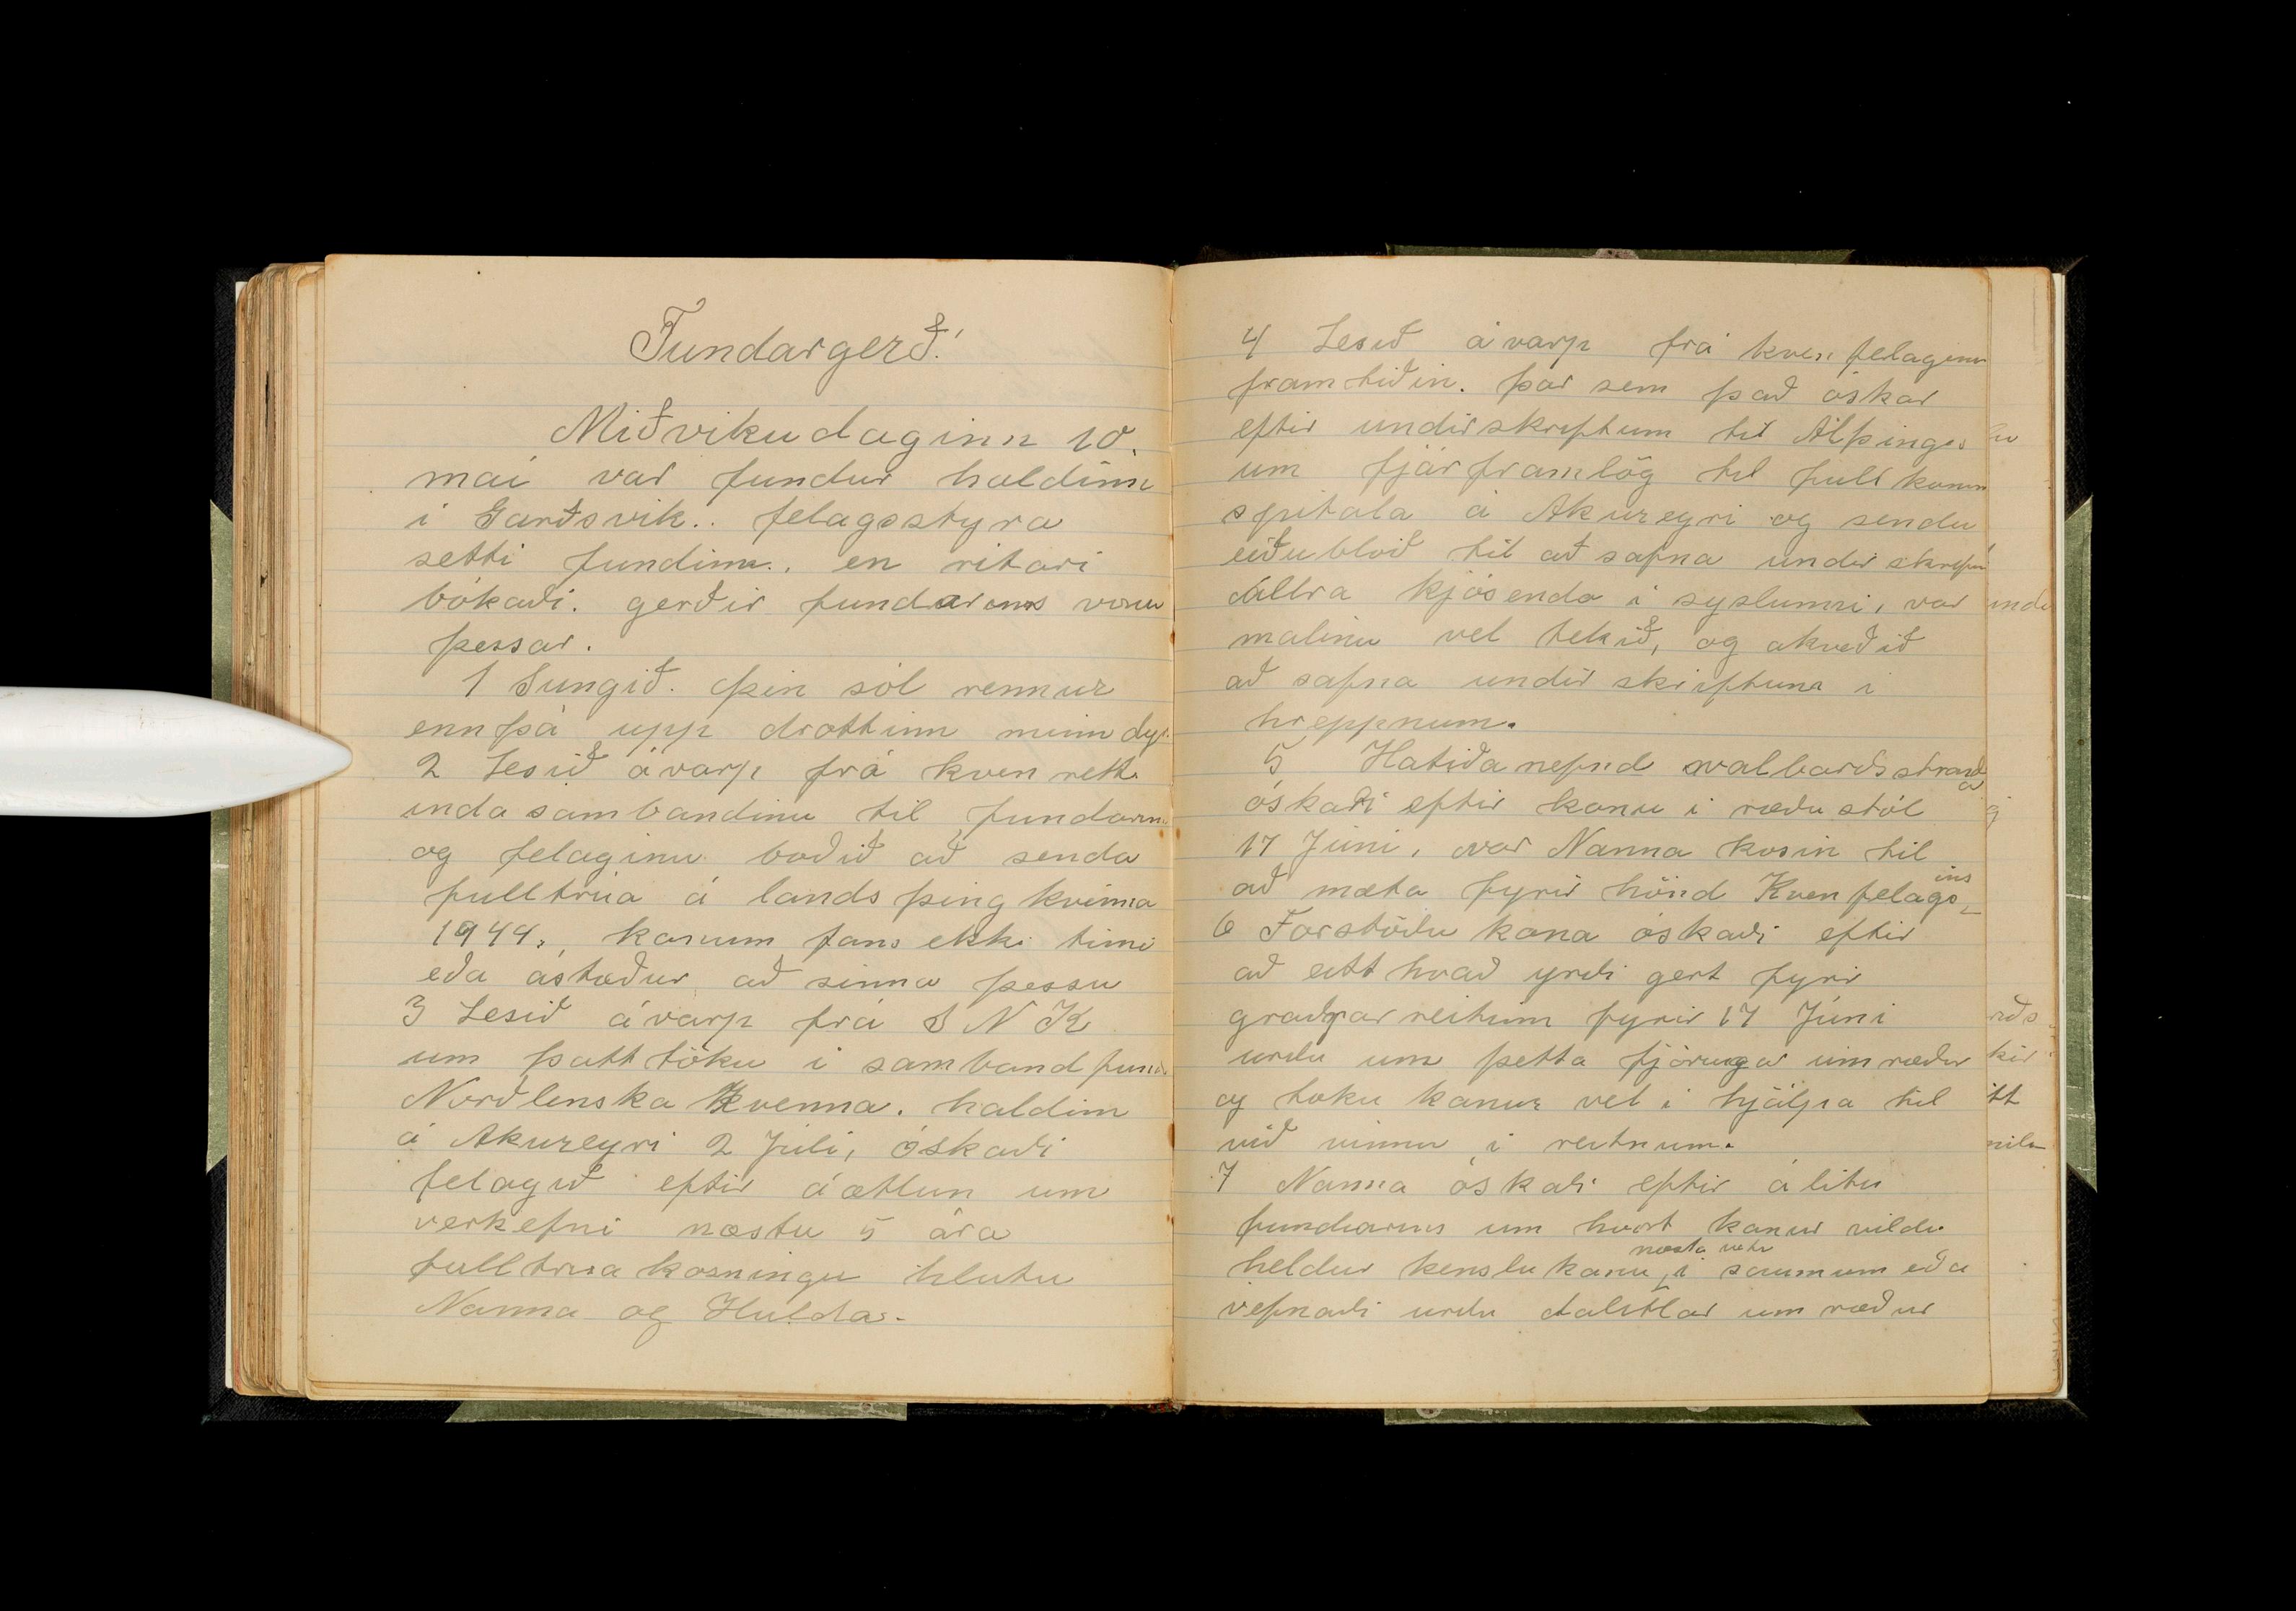 Fundargerð!
Miðvikudaginn 10.
mai var fundur haldinn
i Garðsvik.. felagsstyra
setti fundinn., en ritari
bókaði. gerðir fundarans voru
þessar.
1 Sungið. þin sól rennur
ennþá upp drottinn minn dyr
2 Lesið ávarp frá kven rett
inda sambandinu til fundarins
og felaginu boðið að senda
fulltrúa á lands þing kvenna
1944., konum fans ekki timi
eða ástæður að sinna þessu
3 Lesið ávarp frá S N K
um þatt töku i samband fundi
Norðlenska Kvenna. haldinn
á Akureyri 2 Júli, óskaði
felagið eftir áætlun um
verkefni næstu 5 ára
fulltrúa kosningu hlutu
Nanna og Hulda.
4 Lesið ávarp frá kven felaginu
framtiðin. þar sem það óskar
eftir undirskriftum til Alþinges
um fjárframlög til full komn
spitala á Akureyri og sendu
eiðublöð til að safna under skrift
allra kjósenda i syslunni, var
malinu vel tekið, og akveðið
að safna undir skriftum i
hreppnum.
5 Hatiðanefnd svalbarðsstranda
óskaði eftir konu i ræðu stól
17 Júni, var Nanna kosin til
að mæta fyrir hönd Kvenfelagsins
6 Forstöðu kona óskaði eftir
að eitt hvað yrði gert fyrir
graðrarreitinn fyrir 17 Júni
urðu um þetta fjörugar umræður
og toku konur vel i hjálpa til
við vinnu i reitnum.
7 Nanna óskaði eftir áliti
fundarins um hvort konur vildu
heldur kenslu konu næsta vetr i saumum eða
vefnaði urðu talsverðar um ræður